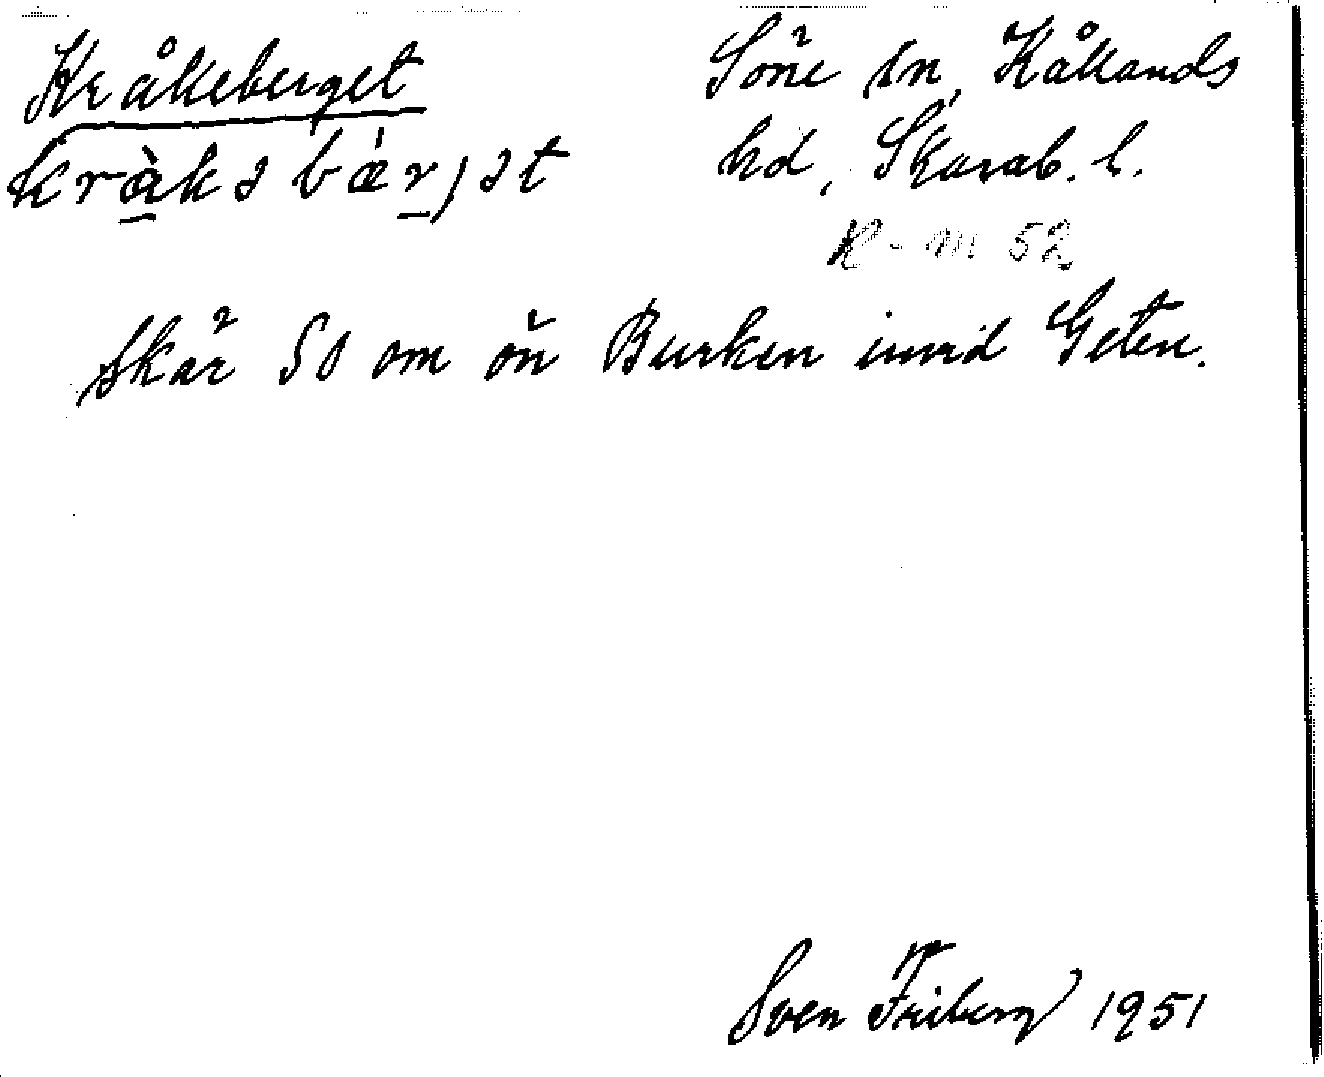 Kråkeberget
kràkəbǽrjət
Söne sn, Kållands
hd, Skarab. l.
R-m 52
skär SO om ön Burken invid Geten.
Sven Friberg 1951